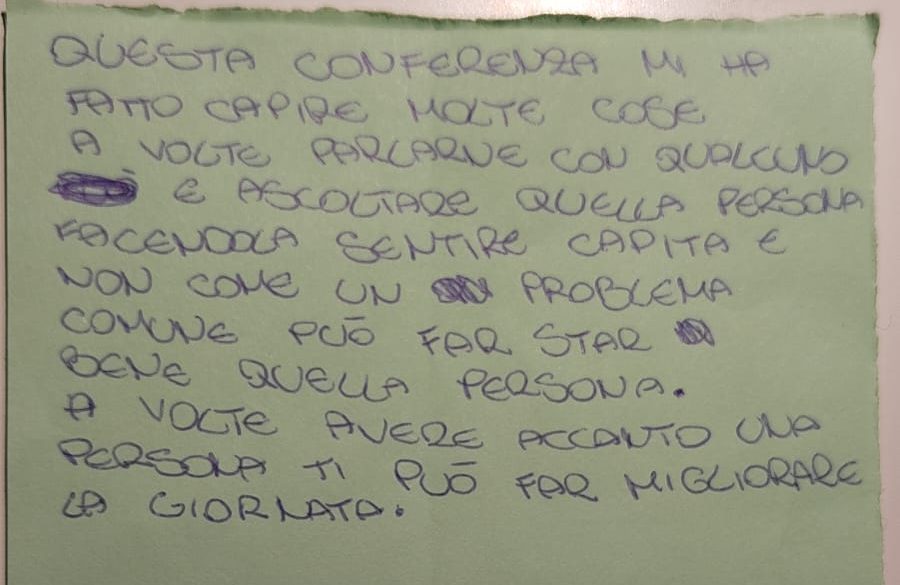 QUESTA CONFERENZA MI HA
FATTO CAPIRE MOLTE COSE
A VOLTE PARLARNE CON QUALCUNO
E ASCOLTARE QUELLA PERSONA
FACENDOLA SENTIRE CAPITA E
NON COME UN PROBLEMA
COMUNE PUÒ FAR STAR
BENE QUELLA PERSONA.
A VOLTE AVERE ACCANTO UNA
PERSONA TI PUÒ FAR MIGLIORARE
LA GIORNATA.